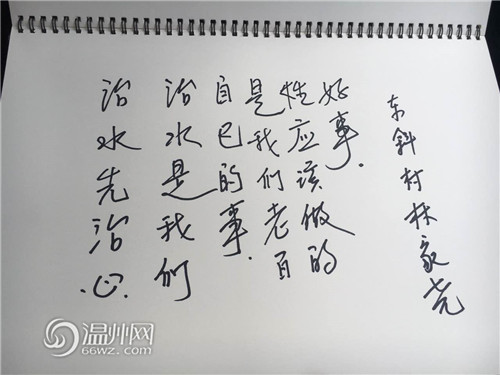 治水先治心.
治水是我们
自已的事.
是我们老百
性应该做的
好事.
东斜村林家尧
温州网
66wz.com